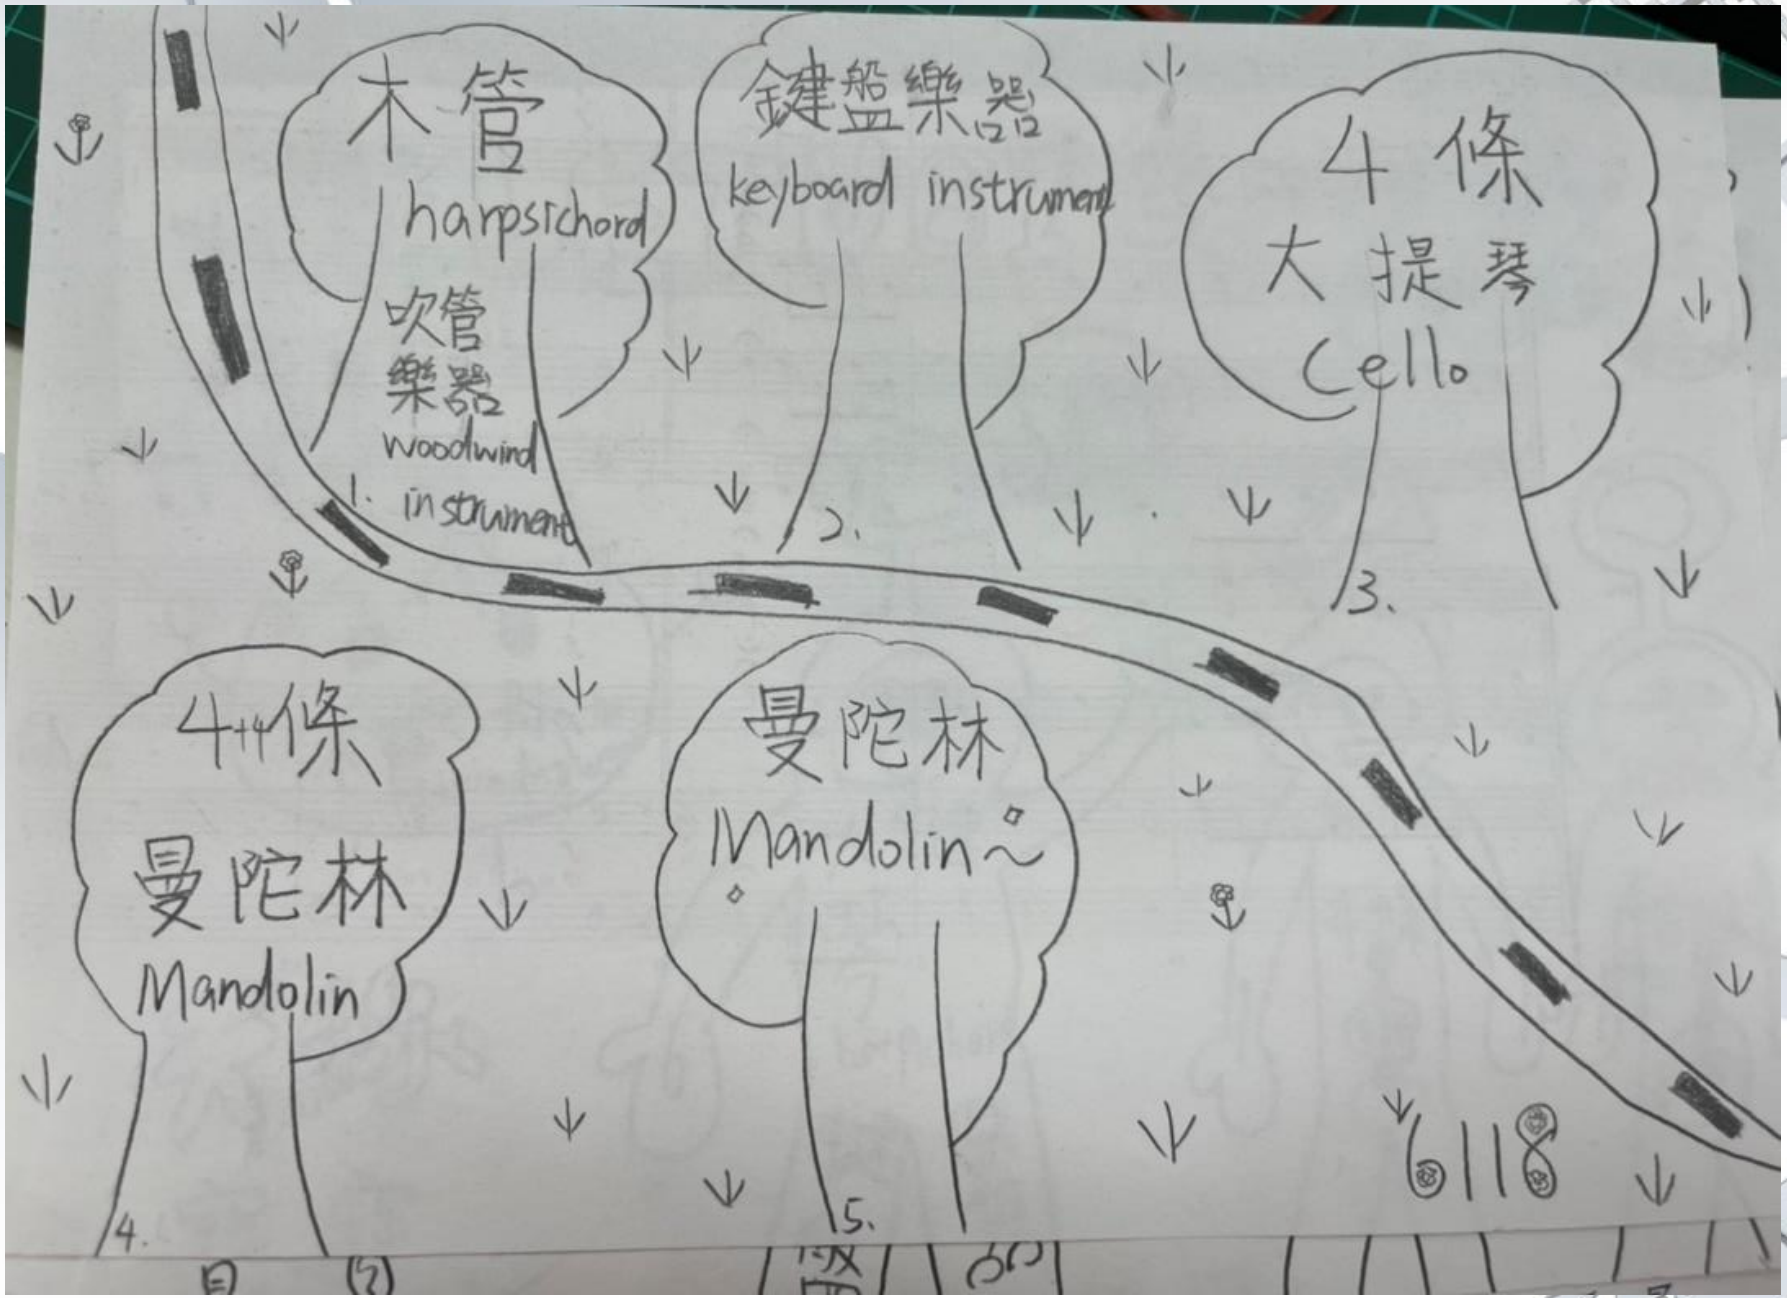 木管
harpsichord
吹管
樂器
woodwind
instrument
1.
鍵盤樂器
keyboard instrument
2.
4條
大提琴
Cello
3.
4+4條
曼陀林
Mandolin
4.
曼陀林
Mandolin~
5.
6118